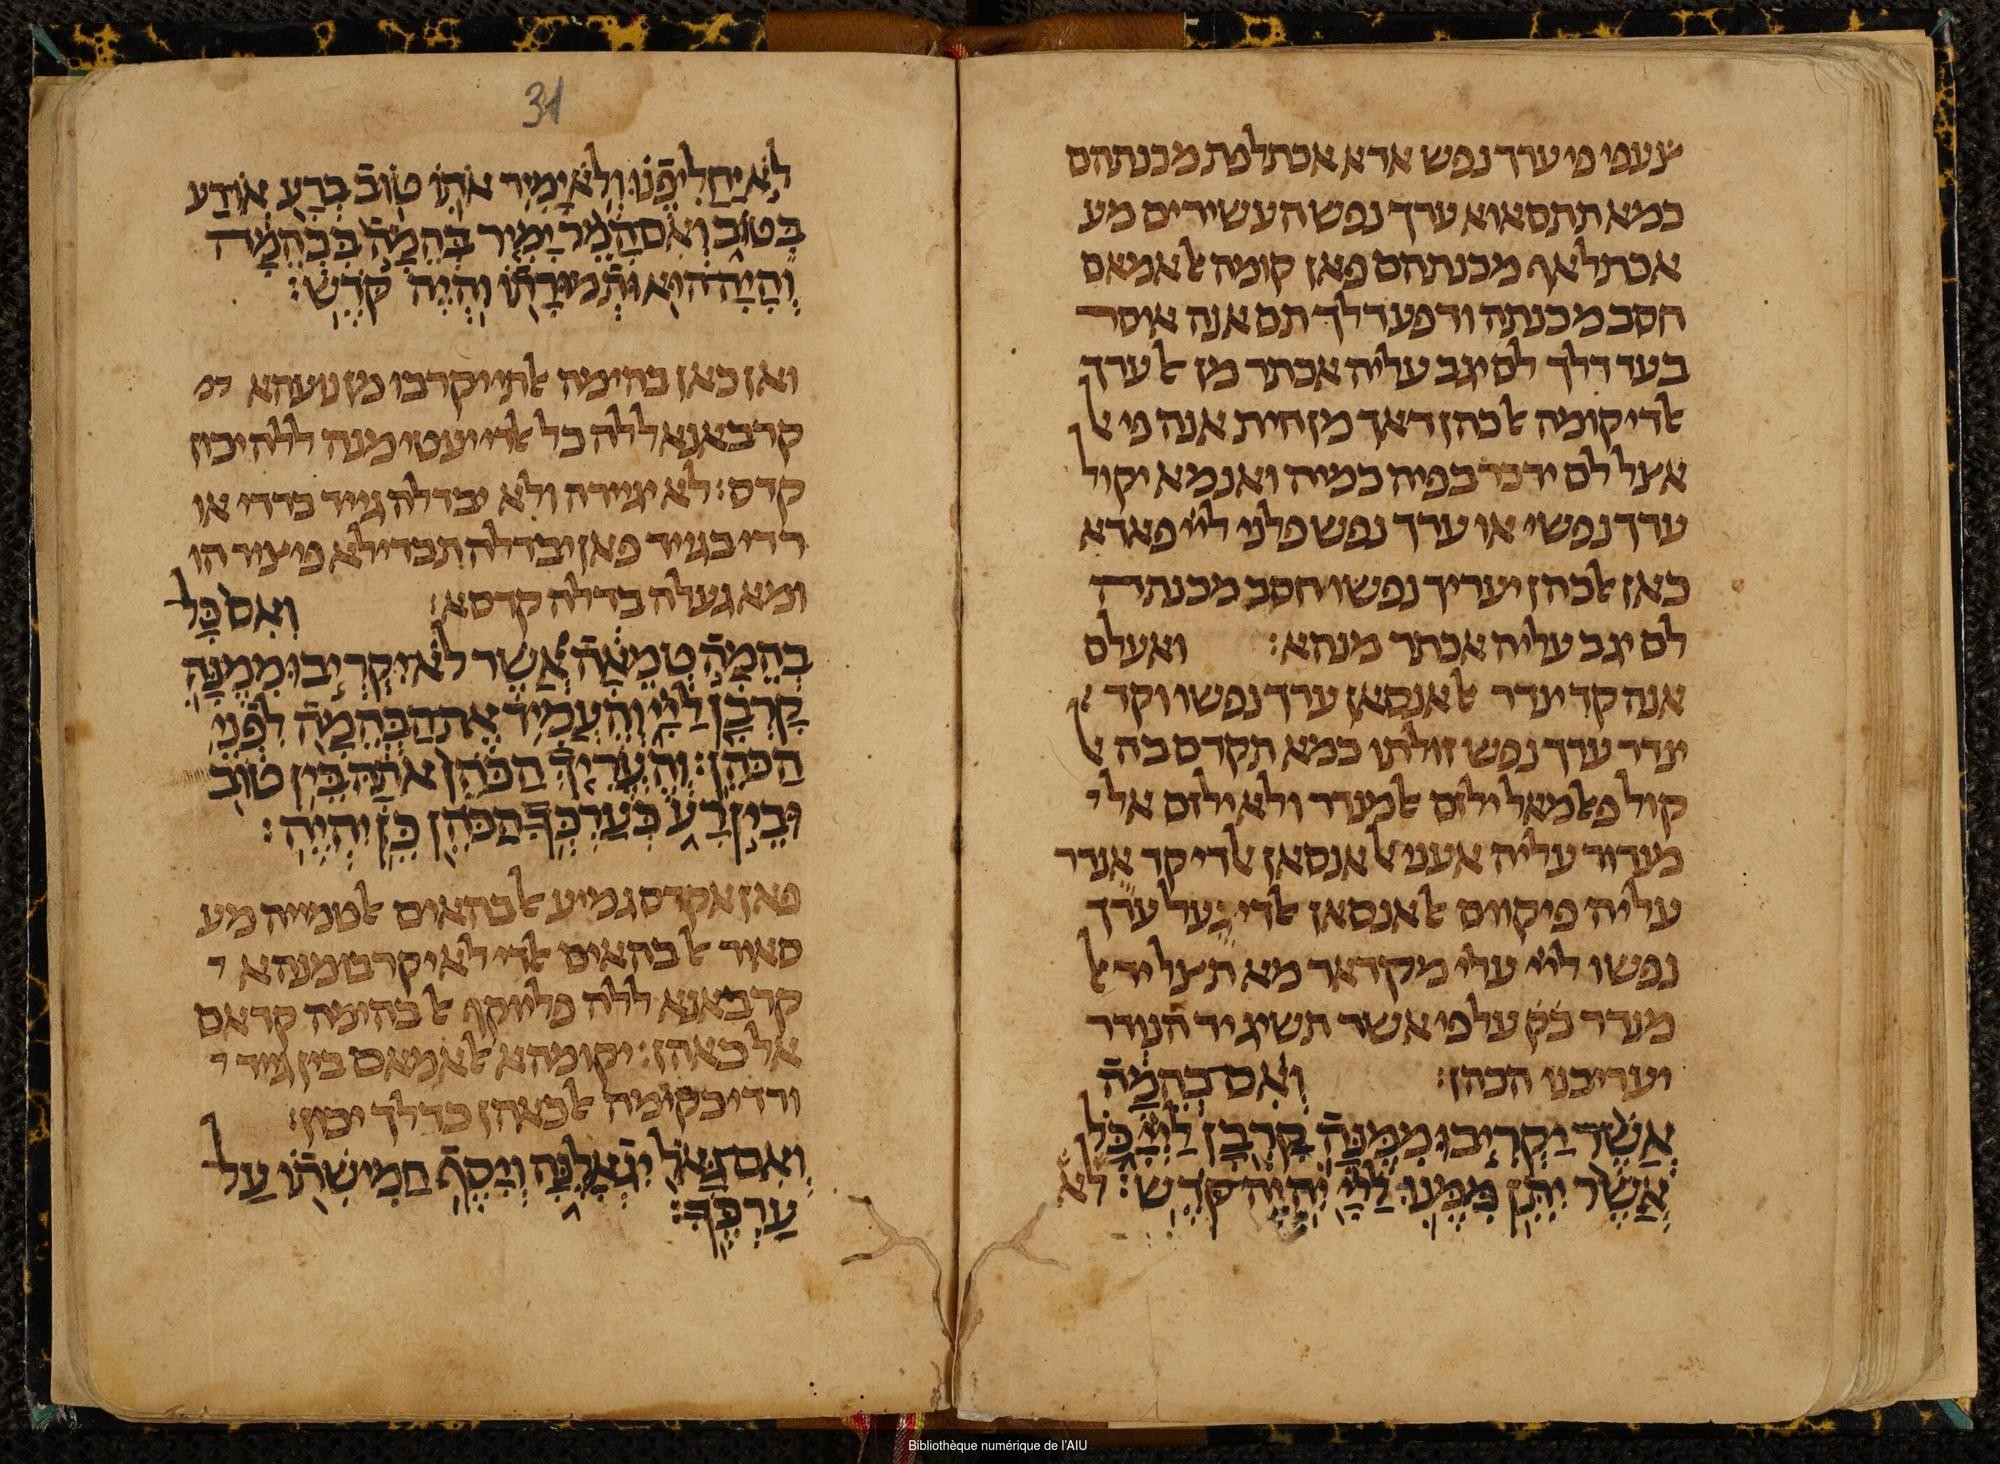 צעפי פי ערך נפש ארא אכתלפת מכנתהם
כמא תתסאוא ערך נפש העשירים מע
אכתלאף מכנתהם פאן קומה אלאמאם
חסב מכנתה ודפע דלך תם אנה איסר
בעד דלך לם יגב עליה אכתר מן אלערך
אלדי קומה אלכהן דאך מן חית אנה פי אל
אצל לם ידכר בפיה כמיה ואנמא יקול
ערך נפשי או ערך נפש פלוני לייי פאדא
כאן אלכהן יעריך נפשו חסב מכנתה
לם יגב עליה אכתר מנהא: ואעלם
אנה קד ינדר אלאנסאן ערך נפשו וקד
ינדר ערך נפש זולתו כמא תקדם בה אל
קול פאלמאל ילזם אלמנדר ולא ילזם אל
מנדור עליה אעני אלאנסאן אלדי קד אנדר
עליה פיקוים אלאנסאן אלדי געל ערך
נפשו לייי עלי מקדאר מא תצל יד אל
מנדר כק על פי אשר תשיג יד הנודר
יעריכנו הכהן: וְאִם בְּהֵמָה
אֲשֶׁר יַקְרִיבוּ מִמֶּנָּה קָרְבָּן לַייָ כָּל
אֲשֶׁר יִתֵּן מִמֶּנּוּ לַייָ יִהְיֶה קֹדֶשׁ: לא
31
לֹא יַחֲלִיפֶנּוּ וְלֹא יָמִיר אֹתוֹ טוֹב בְּרָע אוֹ רַע
בְּטוֹב וְאִם הָמֵר יָמִיר בְּהֵמָה בִּבְהֵמָה
וְהָיָה הוּא וּתְמוּרָתוֹ יִהְיֶה קֹדֶשׁ:
ואן כאן בהימה אלתי יקרבו מן נועהא
קרבאנא ללה כל אלדי יעטי מנה ללה יכון
קדס: לא יגיירה ולא יבדלה גייד ברדי או
רדי בגייד פאן יבדלה תבדילא פיציר הו
ומא געלה בדלה קדסא: וְאִם כָּל
בְּהֵמָה טְמֵאָה אֲשֶׁר לֹא יַקְרִיבוּ מִמֶּנָּה
קָרְבָּן לַייָ וְהֶעֱמִיד אֶת הַבְּהֵמָה לִפְנֵי
הַכֹּהֵן: וְהֶעֱרִיךְ הַכֹּהֵן אֹתָהּ בֵּין טוֹב
וּבֵין רָע כְּעֶרְכְּךָ הַכֹּהֵן כֵּן יִהְיֶה:
פאן אקדס גמיע אלבהאים אלטמייה מע
סאיר אלבהאים אלדי לא יקרבו מנהא
קרבאנא ללה פליוקף אלבהימה קדאם
אלכאהן: יקומהא אלאמאם בין גייד
ורדי כקומה אלכאהן כדלך יכון:
וְאִם גָּאֹל יִגְאָלֶנָּה וְיָסַף חֲמִישִׁתוֹ עַל
עֶרְכֶּךָ:
Bibliothèque numérique de l'AIU